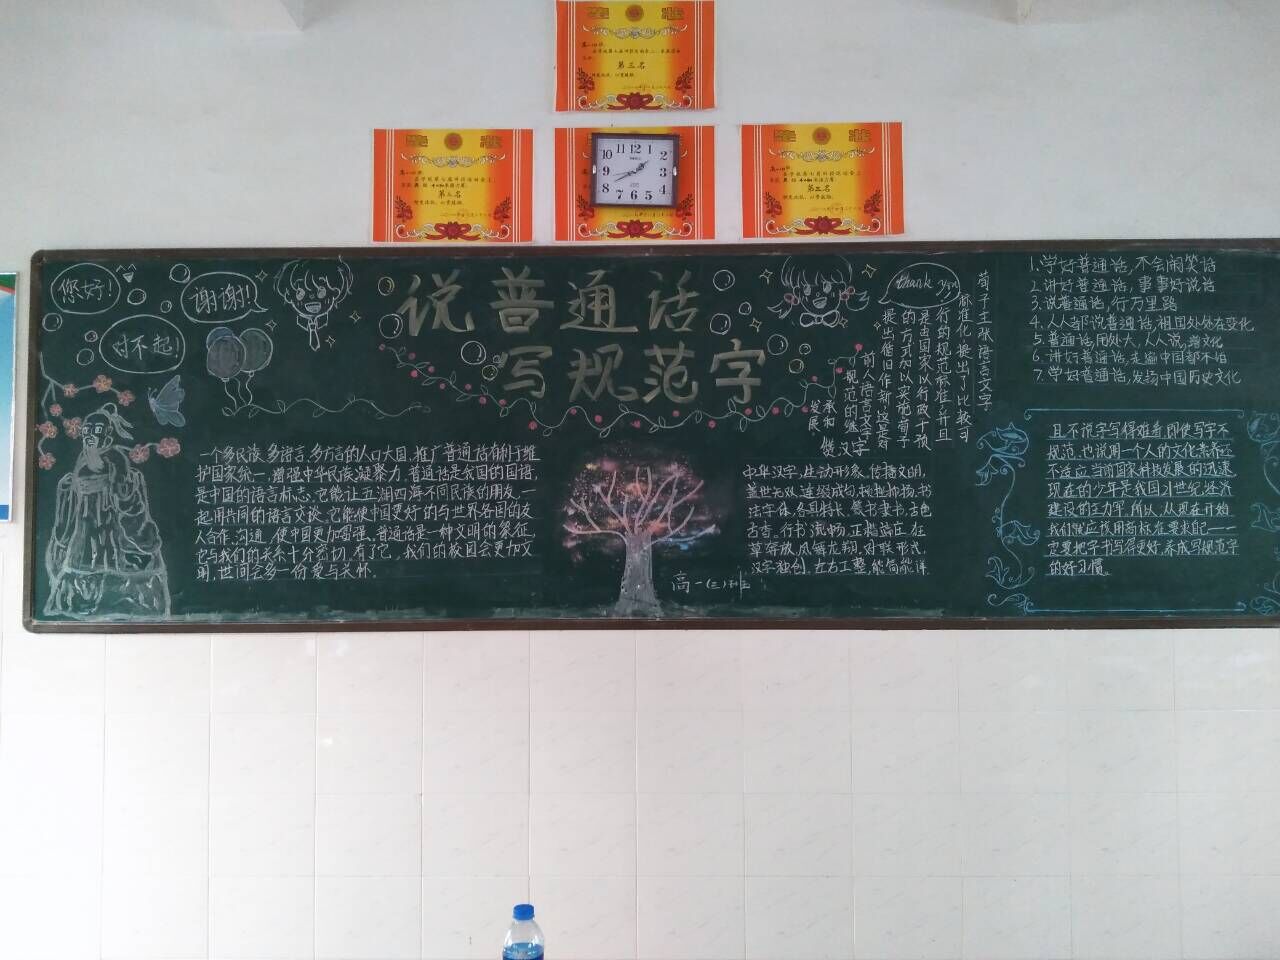 第三名
第三名
第三名
11 12 1
10 2
9 3
8 4
7 6 5
您好!
谢谢!!
对不起!
说普通话
写规范字
thank you
荀子主张语言文字
标准化,提出了比较可
行的规范标准,并且
是由国家以行政干预
的方式加以实施。荀子
提出循旧作新,这是对
前人语言文字
规范的继
承和
发展
赞汉字
1.学好普通话,不会闹笑话
2.讲好普通话,事事好说话
3.说普通话,行万里路
4.人人都说普通话,祖国处处在变化
5.普通话,用处大,人人说,增文化
6.讲好普通话,走遍中国都不怕
7.学好普通话,发扬中国历史文化
一个多民族、多语言、多方言的人口大国,推广普通话有利于维
护国家统一,增强中华民族凝聚力。普通话是我国的国语,
是中国的语言标志,它能让五湖四海不同民族的朋友,一
起用共同的语言交谈。它能使中国更好的与世界各国的友
人合作、沟通,使中国更加强强、普通话是一种文明的象征,
它与我们的关系十分密切,有了它,我们的校园会更加文
明,世间会多一份爱与关怀。
中华汉字,生动形象,传播文明,
盖世无双,连缀成句,抑扬,书
法字体,各具特长,篆书隶书,古色
古香。行书流畅,正楷端庄,狂
草奔放,凤舞龙翔,对联形式,
汉字独创,左右工整,能简能详
高一(三)班
且不说字写得难看,即使写字不
规范,也说明一个人的文化素养还
不适应当前国家科技发展的迅速
现在的少年是我国21世纪经济
建设的主力军,所以,从现在开始
我们就应该用高标在要求自己——
定要把字书写得更好,养成写规范字
的好习惯。